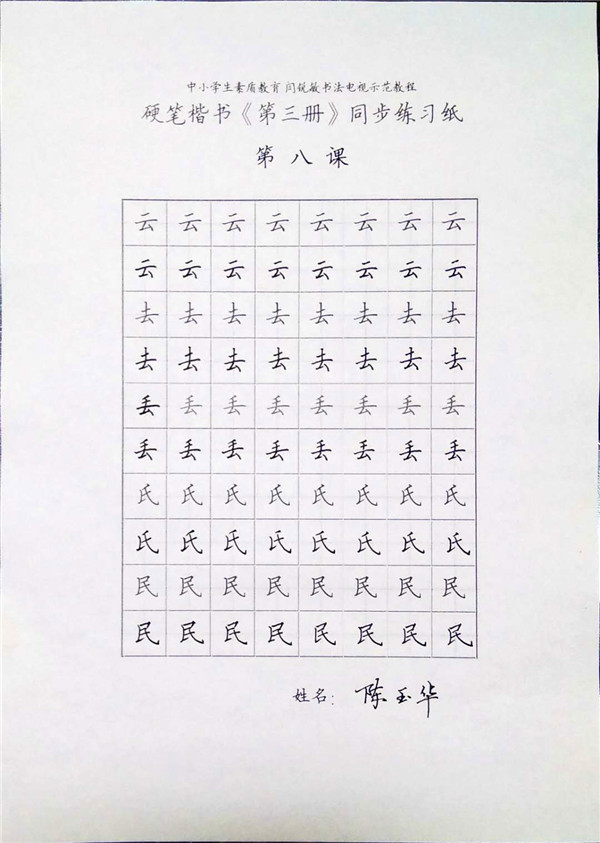 中小学生素质教育 闫锐敏书法电视示范教程
硬笔楷书《第三册》同步练习纸
第 八 课
云 云 云 云 云 云 云 云
云 云 云 云 云 云 云 云
去 去 去 去 去 去 去 去
去 去 去 去 去 去 去 去
丢 丢 丢 丢 丢 丢 丢 丢
丢 丢 丢 丢 丢 丢 丢 丢
氏 氏 氏 氏 氏 氏 氏 氏
氏 氏 氏 氏 氏 氏 氏 氏
民 民 民 民 民 民 民 民
民 民 民 民 民 民 民 民
姓名: 陈玉华